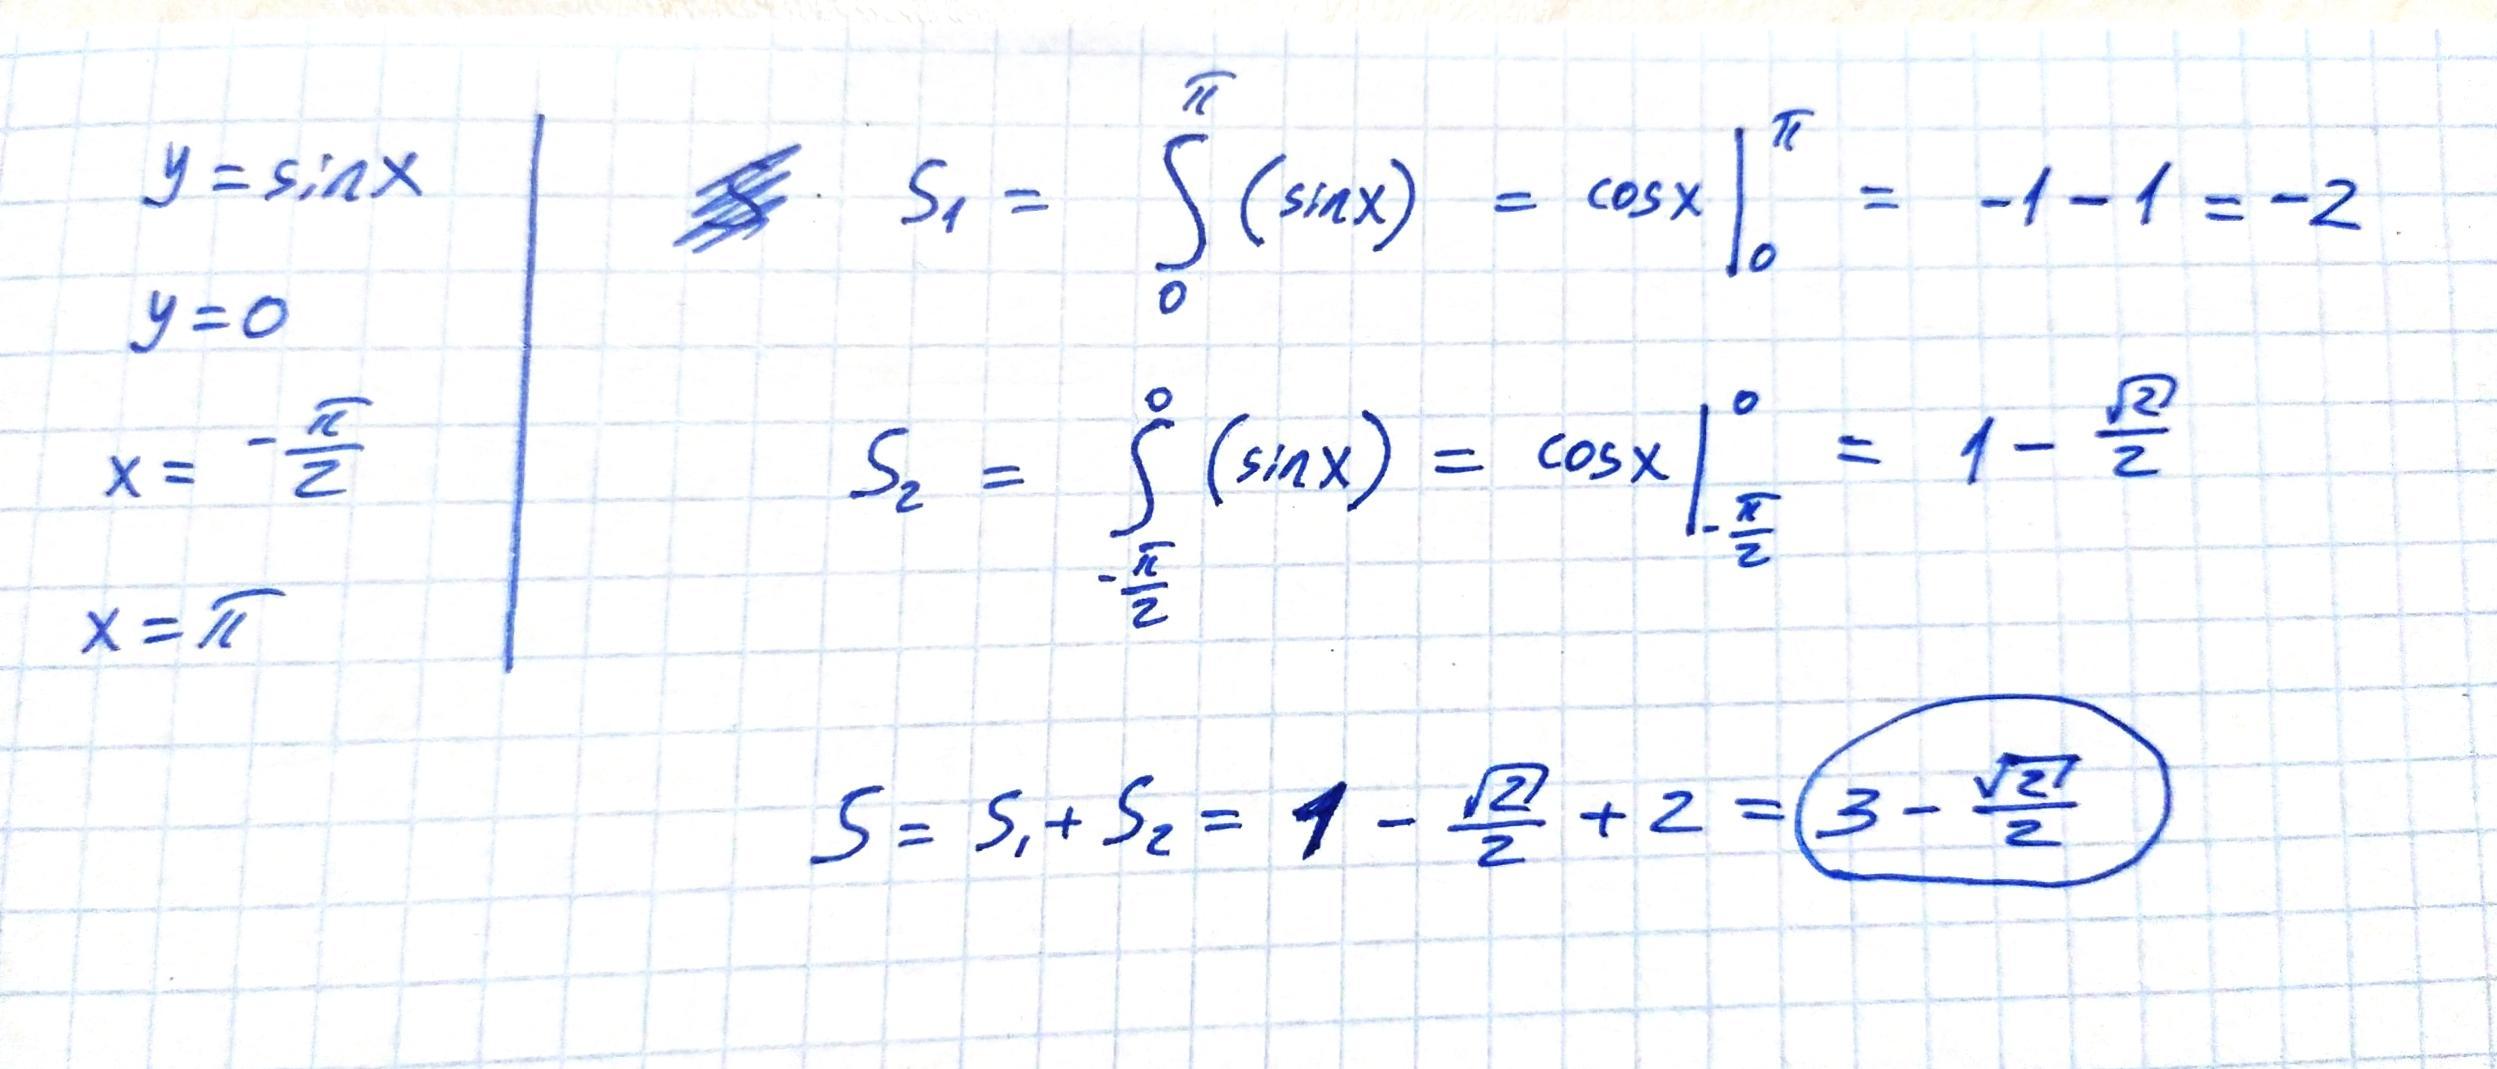 y = sin x
y = 0
x = -π/2
x = π
S₁ = ∫₀^π (sin x) = cos x |₀^π = -1 - 1 = -2
S₂ = ∫_{-π/2}^0 (sin x) = cos x |_{-π/2}^0 = 1 - √2/2
S = S₁ + S₂ = 1 - √2/2 + 2 = 3 - √2/2